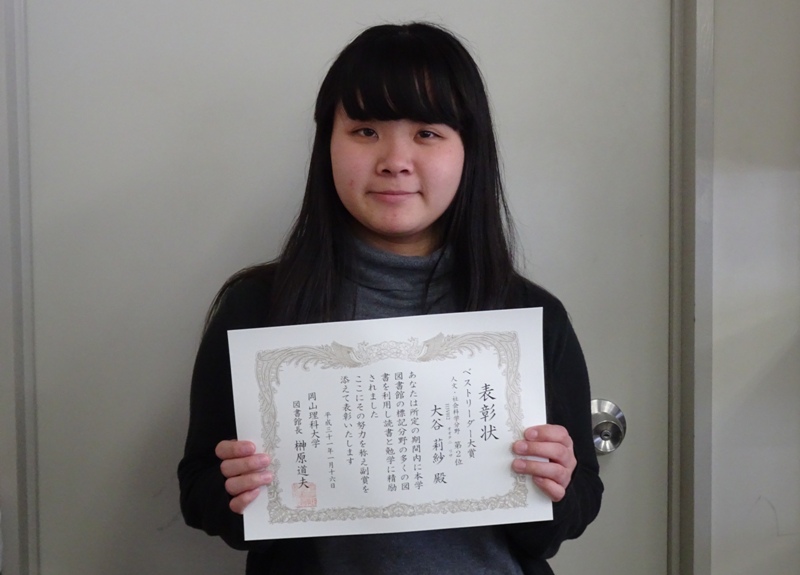 表彰状
ベストリーダー大賞
人文・社会科学分野 第2位
大谷 莉紗 殿
あなたは所定の期間内に本学
図書館の標記分野の多くの図
書を利用し読書と勉学に精励
されました
ここにその努力を称え副賞を
添えて表彰いたします
平成三十一年一月十六日
岡山理科大学
図書館長 榊原道夫